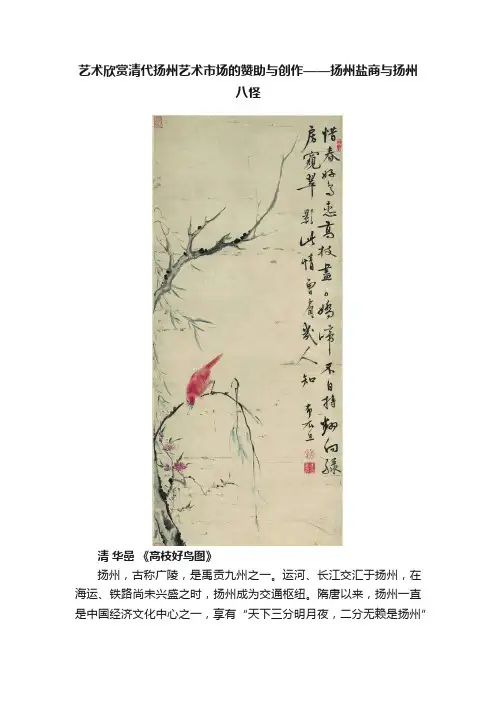 艺术欣赏清代扬州艺术市场的赞助与创作——扬州盐商与扬州
八怪
惜春好鳥戀高枝盡日嬌啼不自持向綠
房窺翠影此情曾幾人知
清 华嵒 《高枝好鸟图》
扬州，古称广陵，是禹贡九州之一。运河、长江交汇于扬州，在
海运、铁路尚未兴盛之时，扬州成为交通枢纽。隋唐以来，扬州一直
是中国经济文化中心之一，享有“天下三分明月夜，二分无赖是扬州”